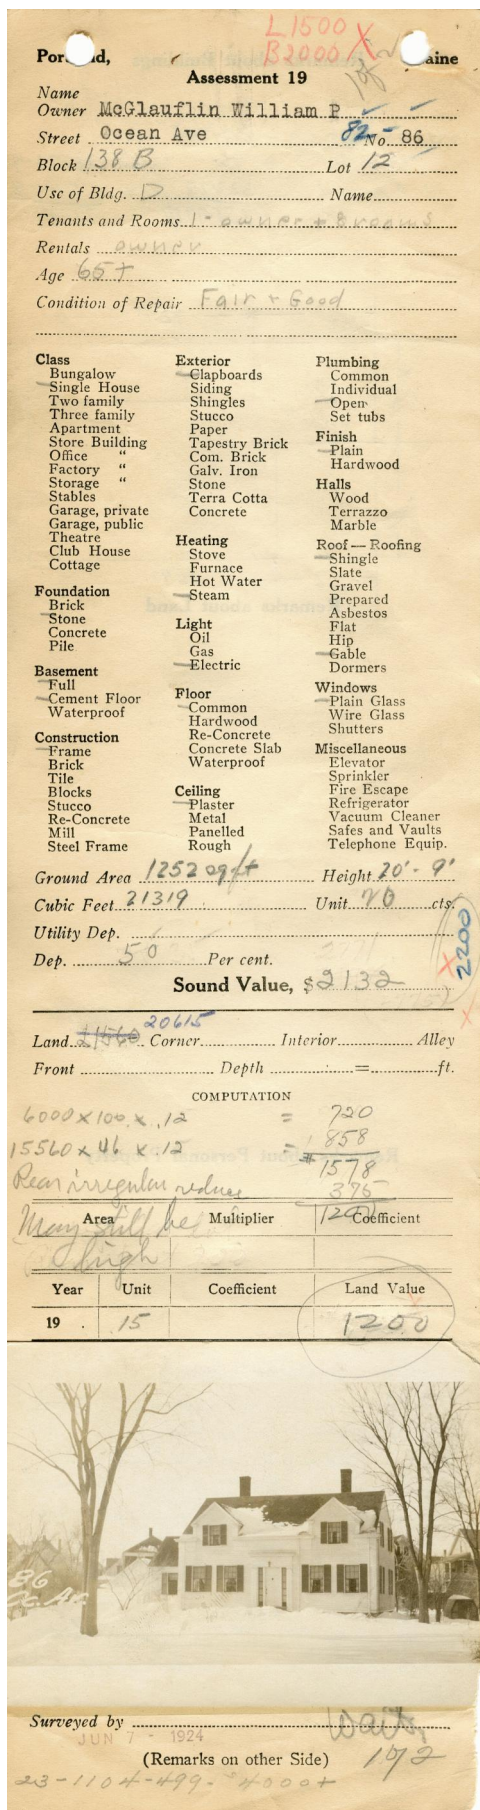 L1500
B2000 X
Portland, Maine
Assessment 19
Name
Owner McGlauflin William P
Street Ocean Ave 82- No 86
Block 138 B Lot 12
Use of Bldg. D Name
Tenants and Rooms 1 - owner + 8 rooms
Rentals owner
Age 65+
Condition of Repair Fair + Good
Class
Bungalow
Single House
Two family
Three family
Apartment
Store Building
Office "
Factory "
Storage "
Stables
Garage, private
Garage, public
Theatre
Club House
Cottage
Foundation
Brick
Stone
Concrete
Pile
Basement
Full
Cement Floor
Waterproof
Construction
Frame
Brick
Tile
Blocks
Stucco
Re-Concrete
Mill
Steel Frame
Exterior
Clapboards
Siding
Shingles
Stucco
Paper
Tapestry Brick
Com. Brick
Galv. Iron
Stone
Terra Cotta
Concrete
Heating
Stove
Furnace
Hot Water
Steam
Light
Oil
Gas
Electric
Floor
Common
Hardwood
Re-Concrete
Concrete Slab
Waterproof
Ceiling
Plaster
Metal
Panelled
Rough
Plumbing
Common
Individual
Open
Set tubs
Finish
Plain
Hardwood
Halls
Wood
Terrazzo
Marble
Roof — Roofing
Shingle
Slate
Gravel
Prepared
Asbestos
Flat
Hip
Gable
Dormers
Windows
Plain Glass
Wire Glass
Shutters
Miscellaneous
Elevator
Sprinkler
Fire Escape
Refrigerator
Vacuum Cleaner
Safes and Vaults
Telephone Equip.
Ground Area 1252 sq ft Height 20' - 9'
Cubic Feet 21319 Unit 20 cts.
Utility Dep.
Dep. 50 Per cent.
X 2200
Sound Value, $2132
20615
Land 21560 Corner Interior Alley
Front Depth = ft.
COMPUTATION
6000 x 100 x .12 = 720
15560 x 46 x .12 = 858
1578
Rear irregular reduce 375
Area Multiplier Coefficient
1200
May still be
high
Year Unit Coefficient Land Value
19 15 1200
86
Oc. Av.
Surveyed by Waite
JUN 7 - 1924
(Remarks on other Side) 172
23-1104-499- 4000+